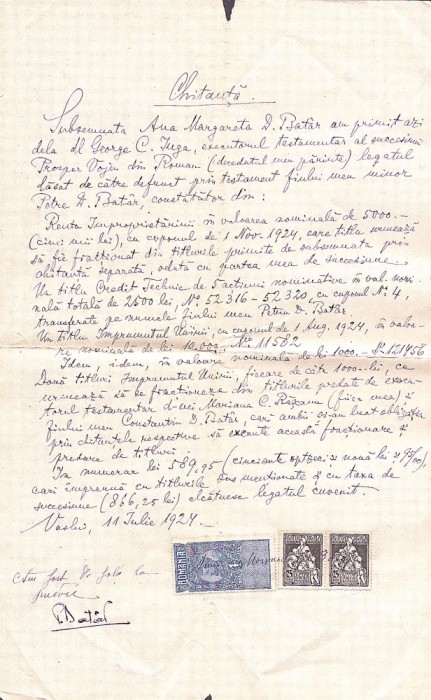 Chitanță.
Subsemnata Ana Margareta D. Batâr am primit azi
dela dl George C. Iuga, executorul testamentar al succesiunii
Prosper Vojen din Roman (decedatul meu părinte) legatul
lăsat de către defunct prin testament fiului meu minor
Petre D. Batâr, constătător din:
Renta Împroprietăririi în valoarea nominală de 5000.—
(cinci mii lei), cu cuponul de 1 Nov. 1924, care titlu urmează
să fie fracționat din titlurile primite de subsemnata prin
chitanță separată, odată cu partea mea de succesiune.
Un titlu Credit Technic de 5 acțiuni nominative în val. nomi-
nală totală de 2500 lei, No 52316–52320, cu cuponul No 4,
transferate pe numele fiului meu Petru D. Batâr.
Un titlu Împrumutul Unirii, cu cuponul de 1 Aug. 1924, în valoa-
re nominală de lei 10.000 No 11582
Idem, idem, în valoare nominală de lei 1000.— No 121456
Două titluri Împrumutul Unirii, fiecare de câte 1000.— lei, ce
urmează să se fracționeze din titlurile predate de execu-
torul testamentar d-nei Mariana C. (fiica mea) și
fiului meu Constantin D. Batâr, cari ambii și-au luat obligația
prin chitanțele respective să execute această fracționare și
predare de titluri.
În numerar lei 589,95 (cincisute optzeci și nouă lei și 95/100),
cari împreună cu titlurile sus menționate și cu taxa de
succesiune (866,25 lei) alcătuesc legatul cuvenit.
Vaslui, 11 Iulie 1924.
ROMANIA
Am fost de față la
Batâr